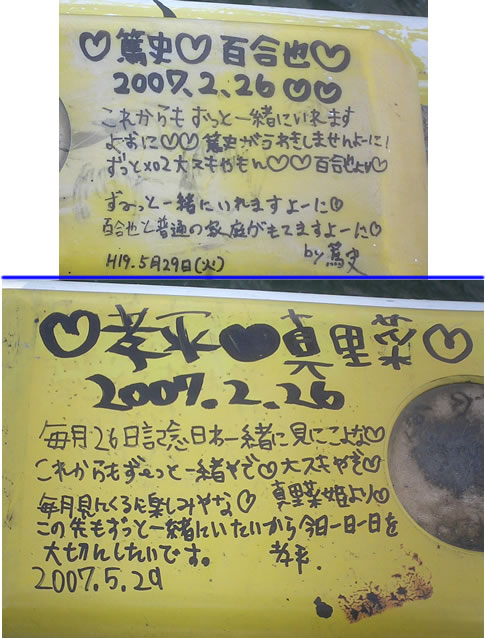 ♡篤史♡百合也♡
2007.2.26 ♡♡
これからもずっと一緒にいれます
よおに♡♡篤史がうわきしませんよーに!
ずっと×02大スキやもん♡♡百合也より♡
ず〜っと一緒にいれますよーに♡
百合也と普通の家庭がもてますよーに♡
H19.5月29日(火) by篤史
♡孝平♥真里菜♡
2007.2.26
毎月26日記念日わ一緒に見にこよな♡
これからもず〜っと一緒やで♡大スキやぞ♡
毎月見にくるん楽しみやな♡ 真里菜姫より♡
この先もずっと一緒にいたいから今日一日一日を
大切にしたいです。 孝平.
2007.5.29